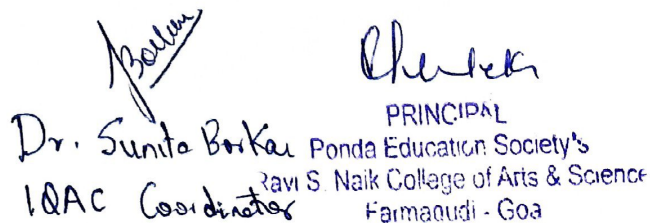 Dr. Sunita Borkar
IQAC Coordinator
PRINCIPAL
Ponda Education Society's
Ravi S. Naik College of Arts & Science
Farmagudi - Goa